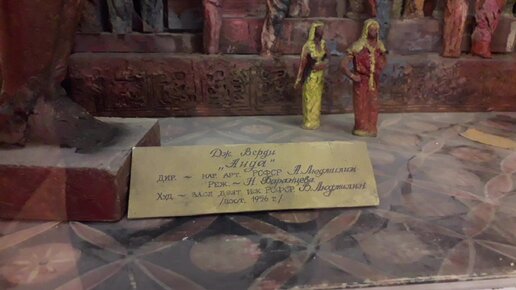 Дж Верди
„Аида"
ДИР. ~ НАР. АРТ. РСФСР А. Людмилин
РЕЖ. ~ Н. Варанцева
ХУД ~ ЗАСЛ. ДЕЯТ. ИСК. РСФСР В. Людмилин
/пост. 1926 г./